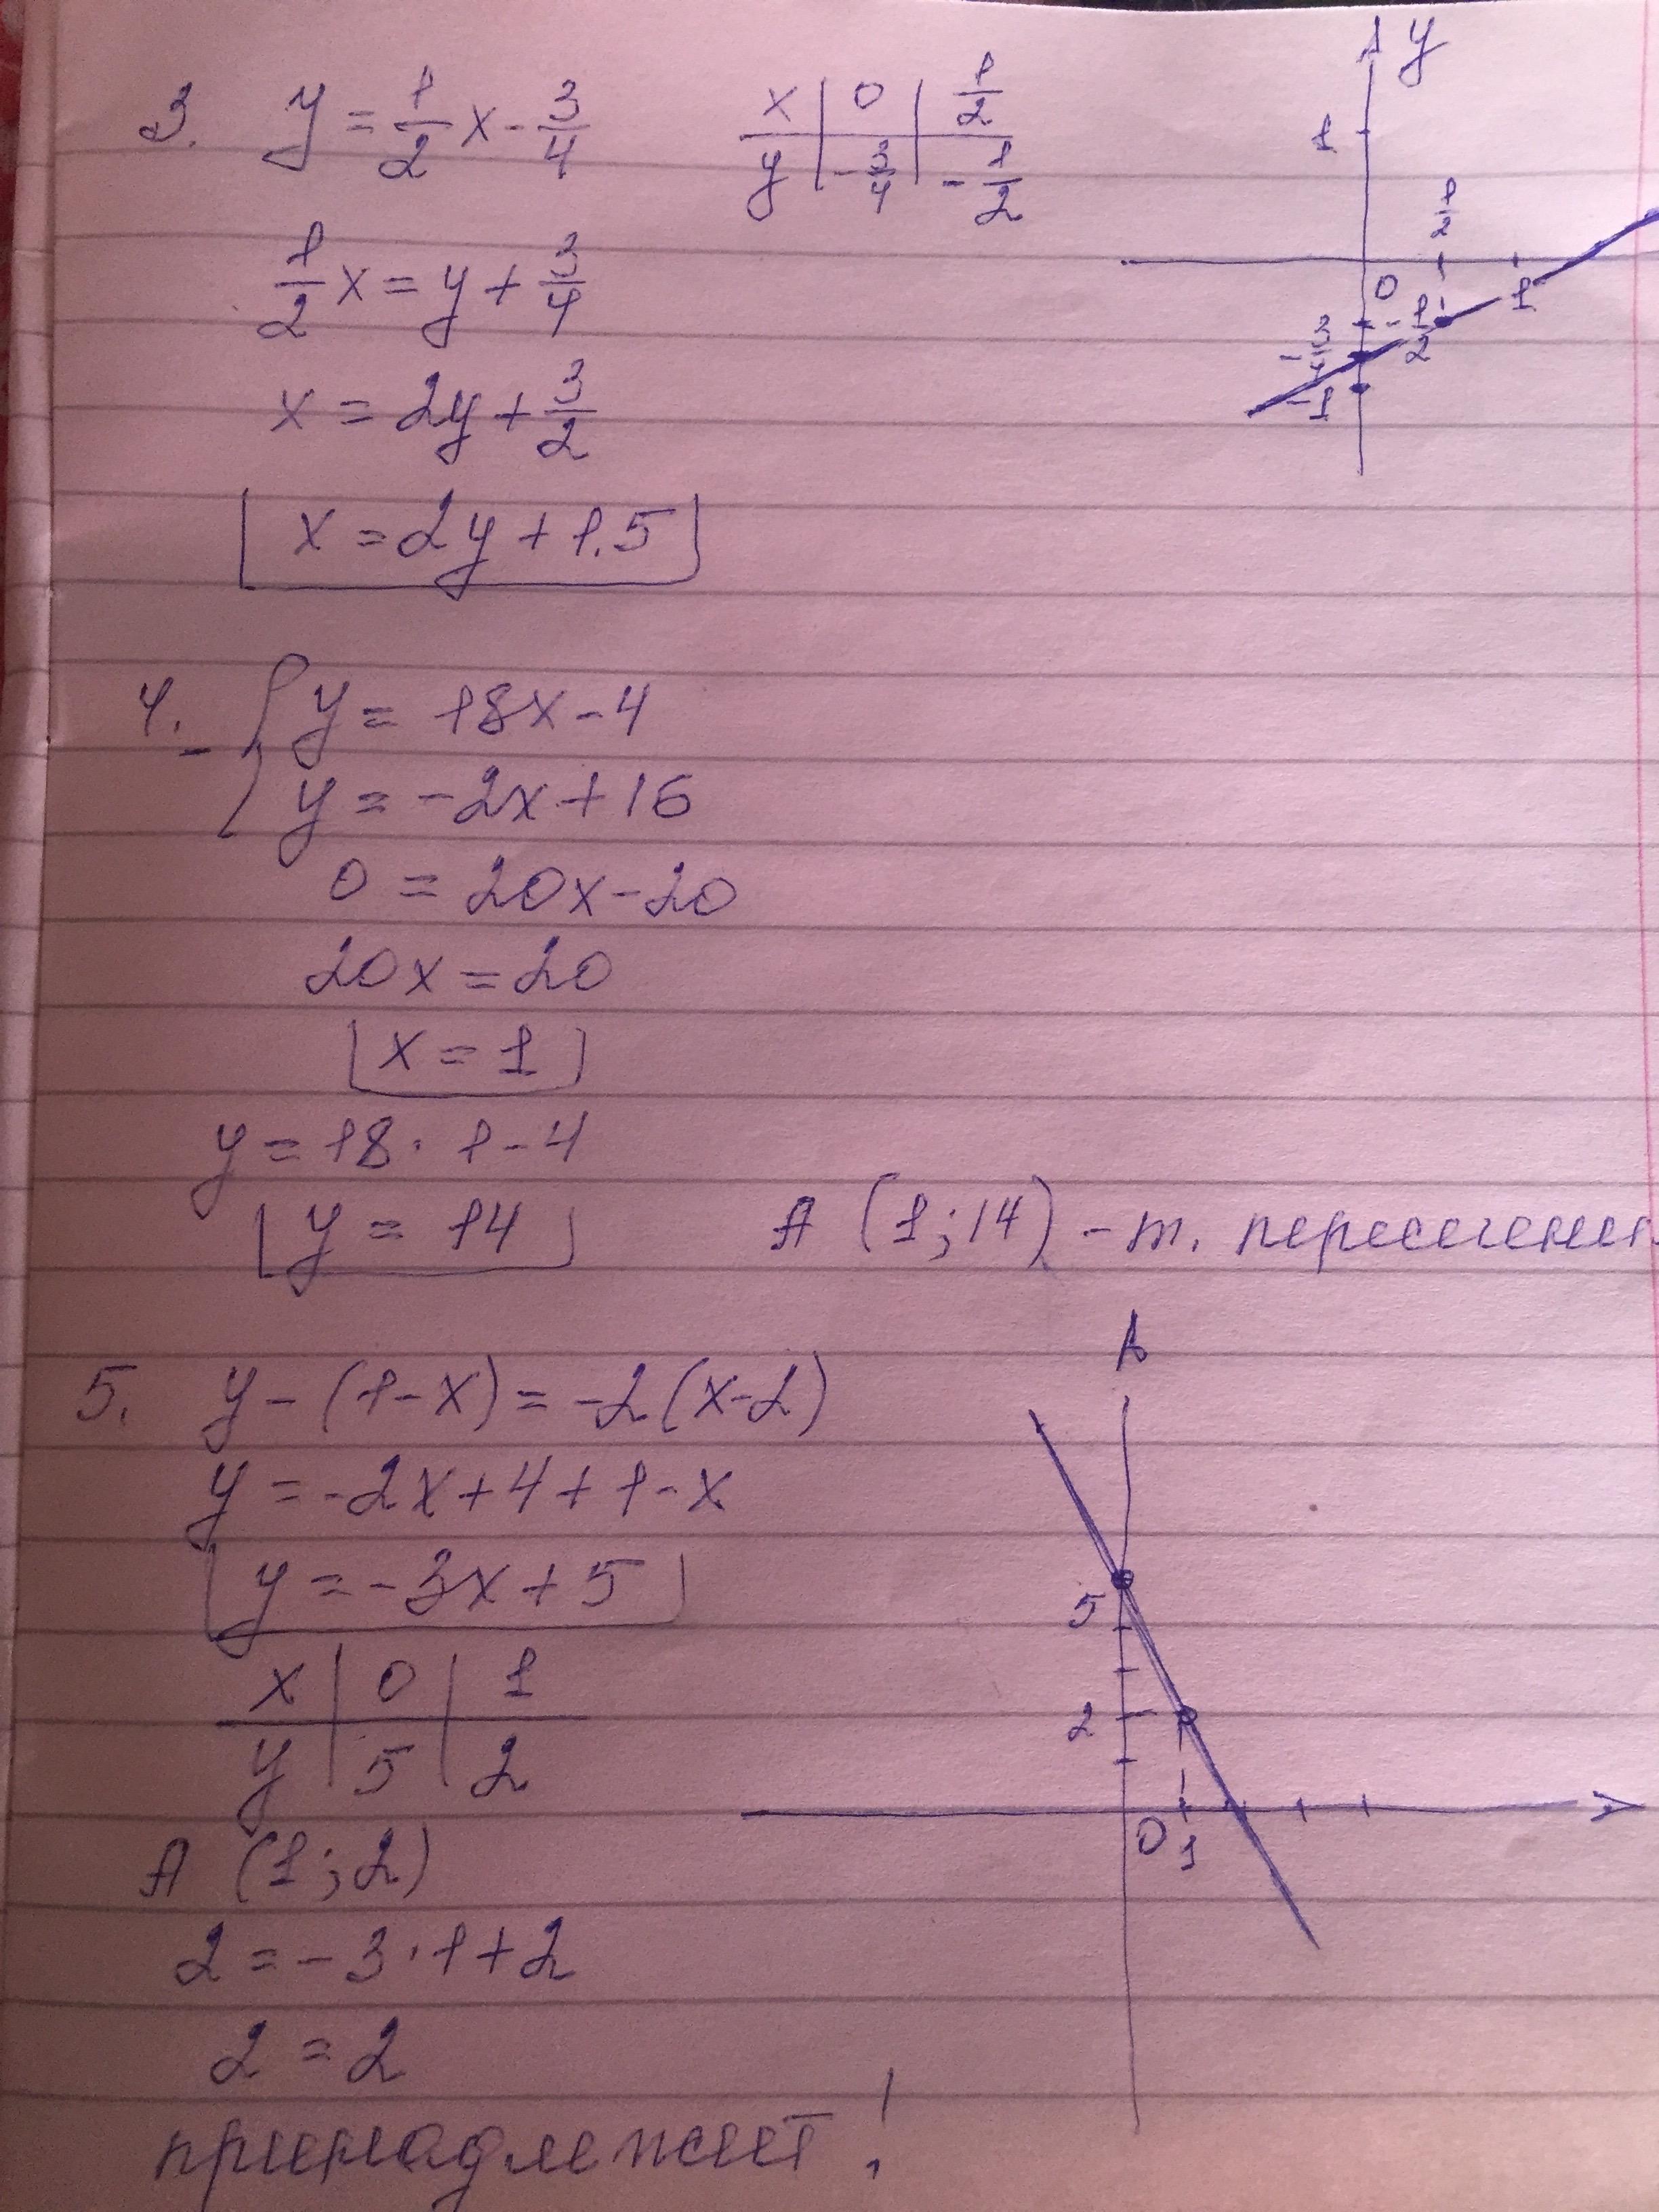 3. y = 1/2 x - 3/4
x | 0 | 1/2
y | -3/4 | -1/2
1/2 x = y + 3/4
x = 2y + 3/2
x = 2y + 1.5
y
1
1/2
0
1
-1/2
-3/4
-1
4. - { y = 18x - 4
y = -2x + 16
0 = 20x - 20
20x = 20
x = 1
y = 18 · 1 - 4
y = 14
A (1; 14) - т. пересечен
5. y - (1 - x) = -2(x - 2)
y = -2x + 4 + 1 - x
y = -3x + 5
x | 0 | 1
y | 5 | 2
A (1; 2)
2 = -3 · 1 + 2
2 = 2
принадлежит!
5
2
0
1